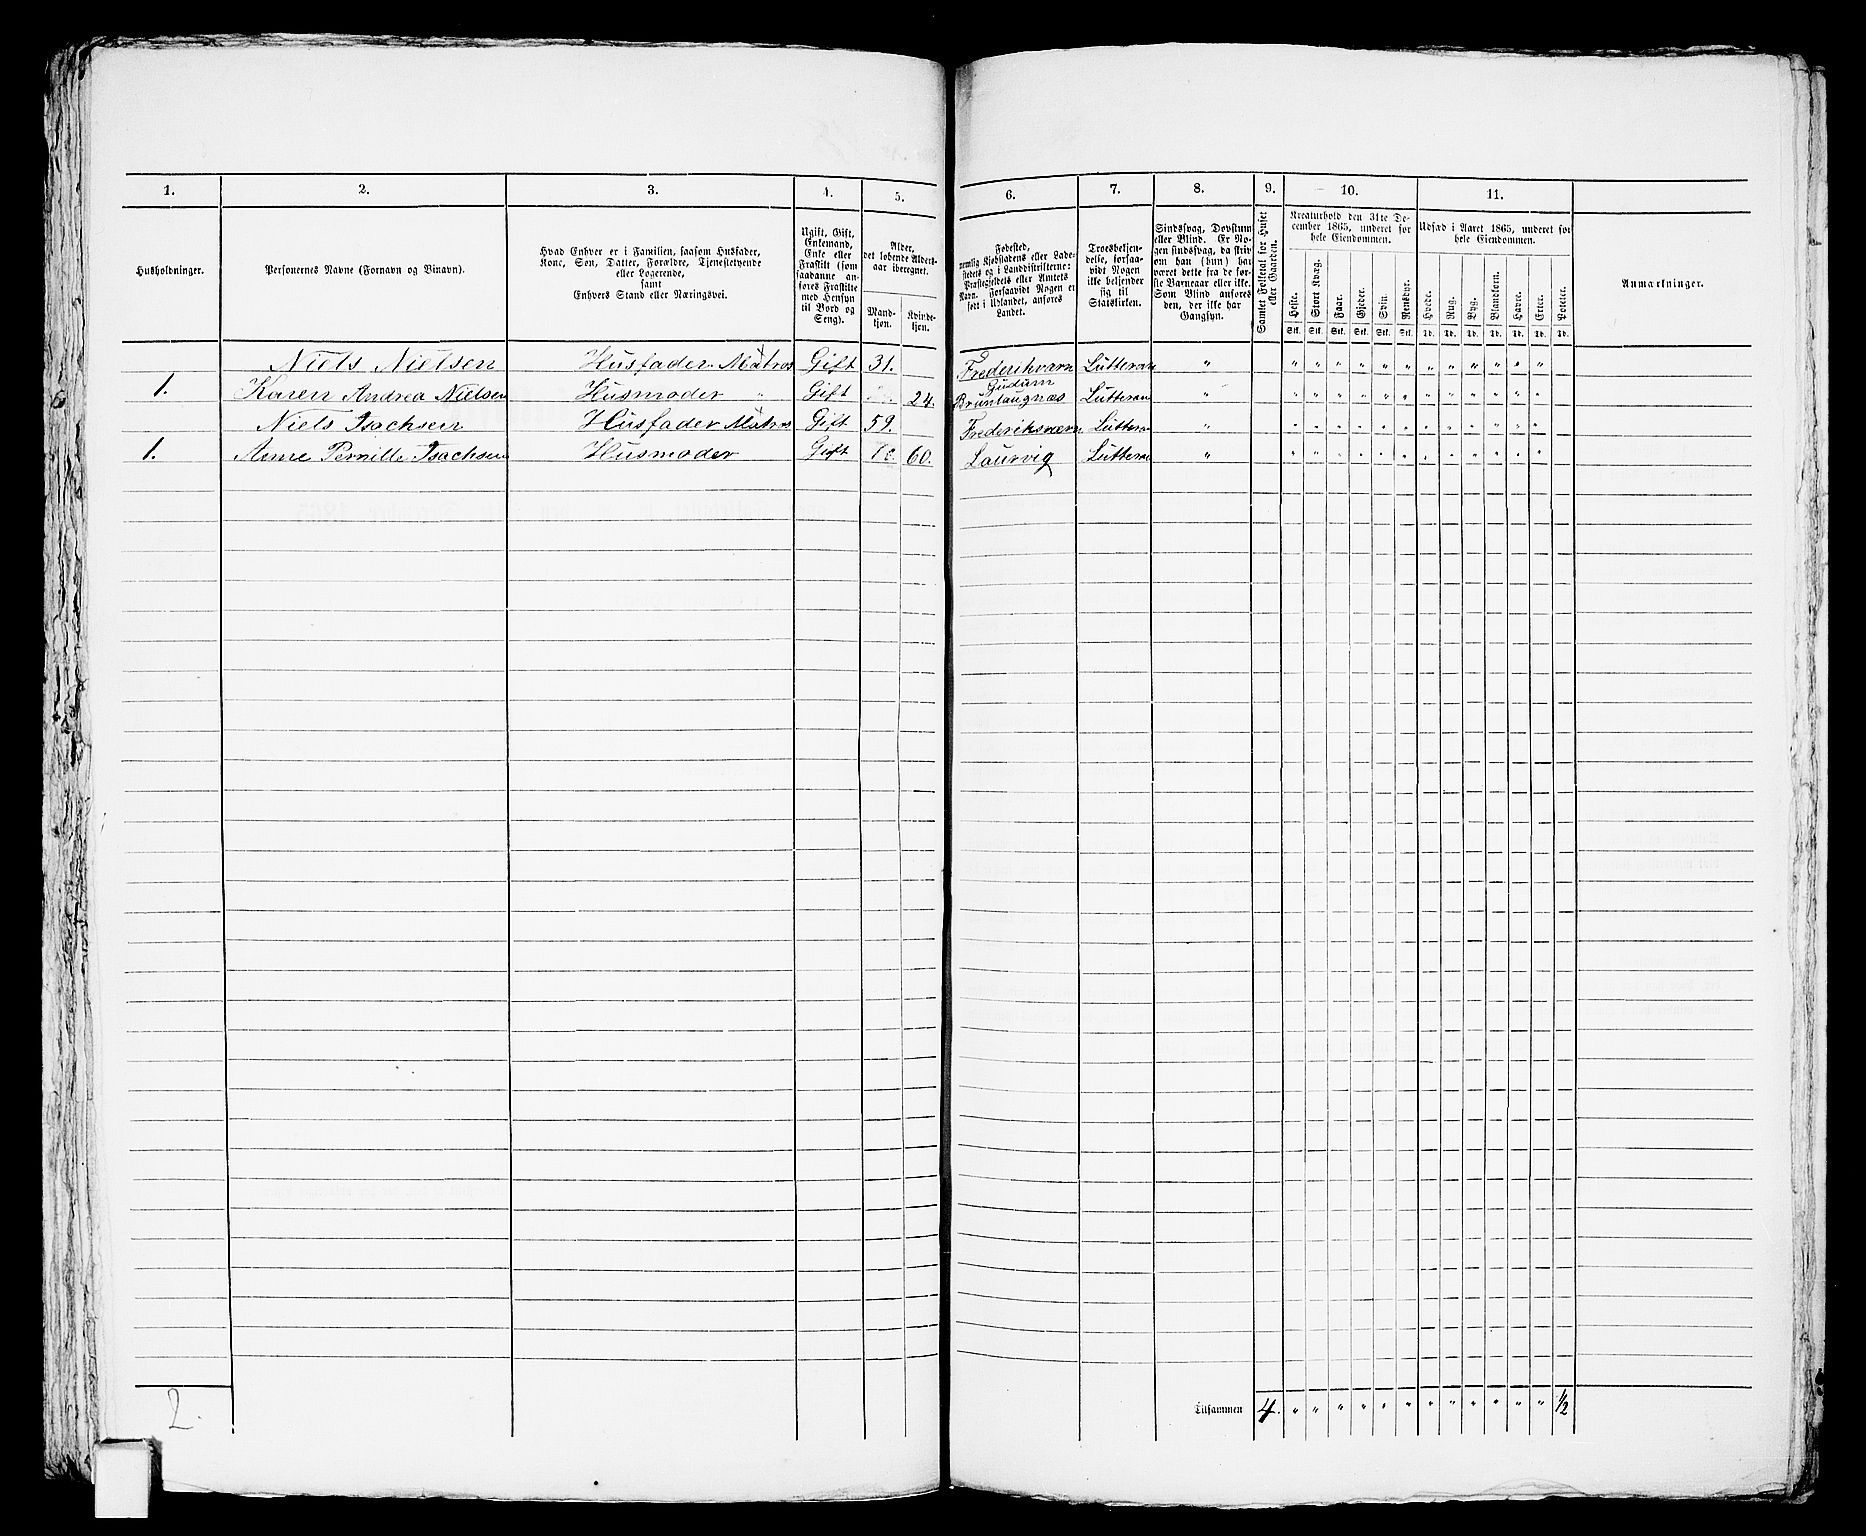 1. 2. 3. 4. 5. 6. 7. 8. 9. 10. 11.
Husholdninger.
Personernes Navne (Fornavn og Binavn).
Hvad Enhver er i Familien, saasom Husfader,
Kone, Søn, Datter, Forældre, Tjenestetyende
eller Logerende,
samt
Enhvers Stand eller Næringsvei.
Ugift, Gift,
Enkemand,
Enke eller
Fraskilt (som
saadanne an-
føres Fraskilte
med Hensyn
til Bord og
Seng).
Alder,
det løbende Alders-
aar iberegnet.
Mand-
kjøn.
Kvinde-
kjøn.
Fødested,
nemlig Kjøbstadens eller Lade-
stedets og i Landdistrikterne:
Præstegjeldets eller Amtets
Navn. Forsaavidt Nogen er
født i Udlandet, anføres
Landet.
Troesbekjen-
delse, forsaa-
vidt Nogen
ikke bekjender
sig til
Statskirken.
Sindssvag, Døvstum
eller Blind. Er No-
gen sindssvag, da skriv
om han (hun) har
været dette fra de før-
ste Barneaar eller ikke.
Som Blind anføres
den, der ikke har
Gangsyn.
Samlet Folketal for Huset
eller Gaarden.
Kreaturhold den 31te De-
cember 1865, underet for
hele Eiendommen.
Heste. Stort Kvæg. Faar. Gjeder. Svin. Rensdyr.
Stk. Stk. Stk. Stk. Stk. Stk.
Udsæd i Aaret 1865, underet for
hele Eiendommen.
Hvede. Rug. Byg. Blandkorn. Havre. Erter. Poteter.
Td. Td. Td. Td. Td. Td. Td.
Anmærkninger.
Niels Nielsen Husfader Matros Gift 31. Frederiksværn Lutteran " " " " " " " " " " " " "
1. Karen Andrea Nielsen Husmoder " Gift 24. Brunlaugnæs Lutteran " " " " " " " " " " " " "
Niels Isachsen Husfader Matros Gift 59. Frederiksværn Luttera " " " " " " " " " " " " "
1. Anne Pernille Isachsen Husmoder Gift 60. Laurvig Lutteran " " " " " " " " " " " " "
2. Tilsammen 4. " " " " " " " " " " " " 1/2